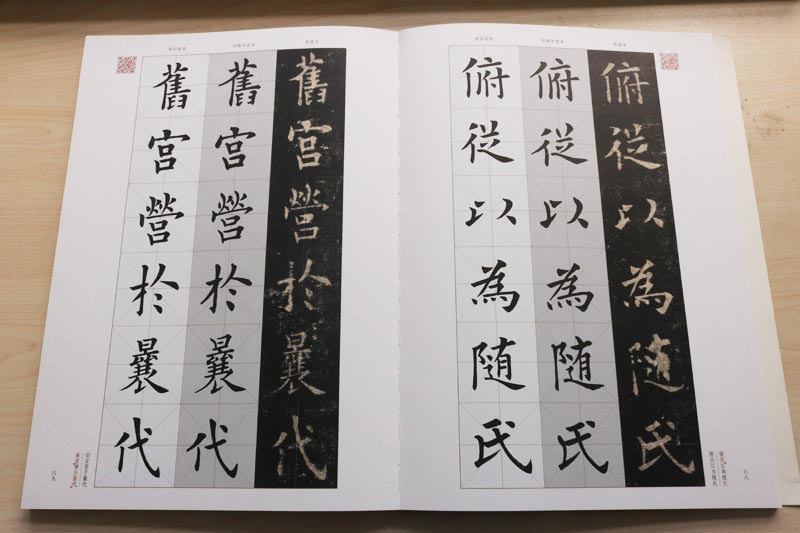 俯從以為随氏
俯從以為随氏
俯從以為随氏
六八
舊宮營於曩代
舊宮營於曩代
舊宮營於曩代
六九